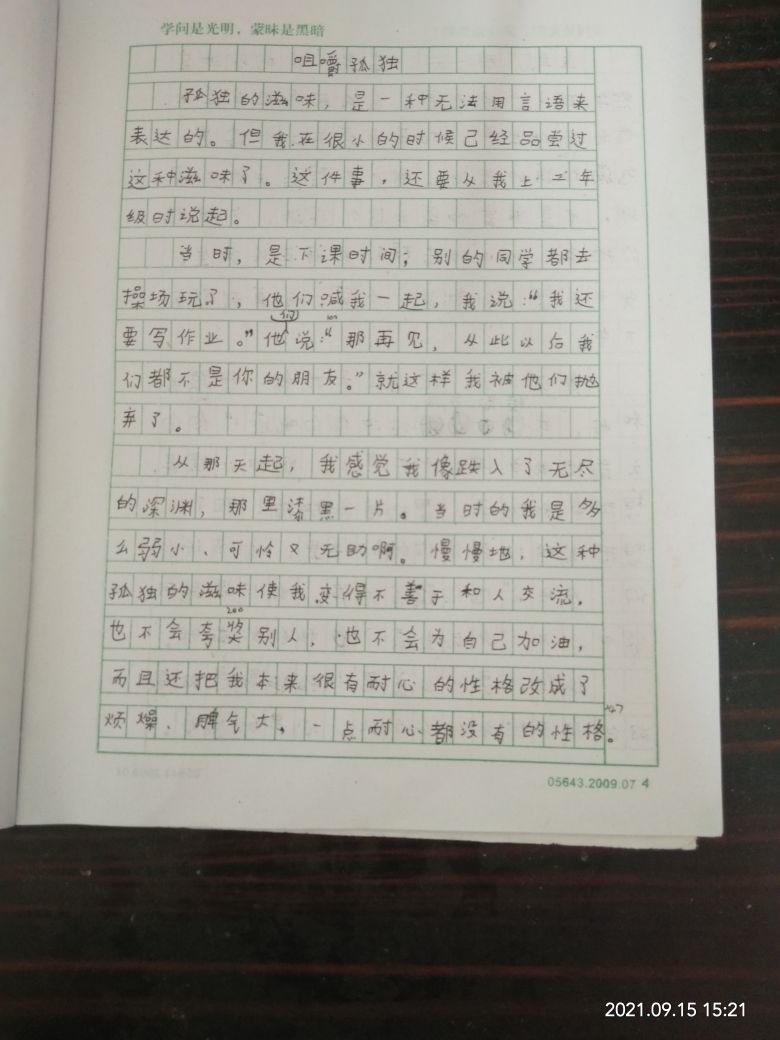 学问是光明，蒙昧是黑暗
咀嚼孤独
孤独的滋味，是一种无法用言语来
表达的。但我在很小的时候已经品尝过
这种滋味了。这件事，还要从我上二年
级时说起。
当时，是下课时间；别的同学都去
操场玩了，他们喊我一起，我说：“我还
要写作业。”他们说：“那再见，从此以后我
们都不是你的朋友。”就这样我被他们抛
弃了。
从那天起，我感觉我像跌入了无尽
的深渊，那里漆黑一片。当时的我是多
么弱小、可怜又无助啊。慢慢地，这种
孤独的滋味使我变得不善于和人交流，
也不会夸奖别人，也不会为自己加油，
而且还把我本来很有耐心的性格改成了
烦燥、脾气大，一点耐心都没有的性格。
100
200
05643.2009.07 4
2021.09.15 15:21